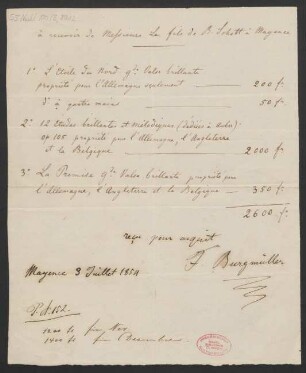 à recevoir de Messieurs les fils de B. Schott à Mayence
1° L'Etoile du Nord gde Valse brillante
propriété pour l'Allemagne seulement — 200 fr.
d° à quatre mains — 50 fr.
2° 12 Etudes brillantes et mélodiques (dédiées à
op 105 propriété pour l'Allemagne, l'Angleterre
et la Belgique — 2000 fr.
3° La Première gde Valse brillante propriété pour
l'Allemagne, l'Angleterre et la Belgique — 350 fr.
2600 fr.
reçu pour acquit
F Burgmüller
Mayence 3 Juillet 1854